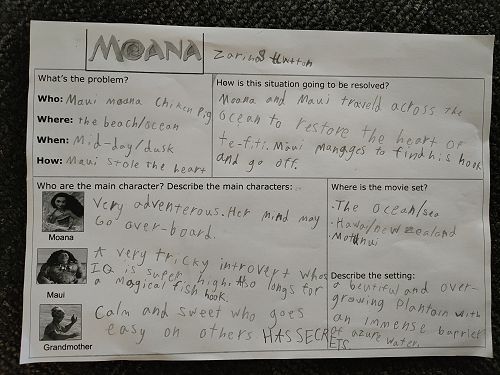 MOANA
What's the problem?
Who: Maui moana Chiken Pig
Where: the beach/ocean
When: Mid-day/dusk
How: Maui Stole the heart
How is this situation going to be resolved?
Moana and Maui traveld across the
ocean to restore the heart of
te-fiti. Maui manages to find his hook
and go off.
Who are the main character? Describe the main characters:
Very adventerous. Her mind may
Go over-board.
Moana
A very tricky introvert whos
IQ is super high. Also longs for
a magical fish hook.
Maui
Calm and sweet who goes
easy on others. HAS SECRETS.
Grandmother
Where is the movie set?
• The ocean/sea
• /new zealand
Describe the setting:
a beutiful and over-
growing Plantain with
an immense barrier
of azure water.